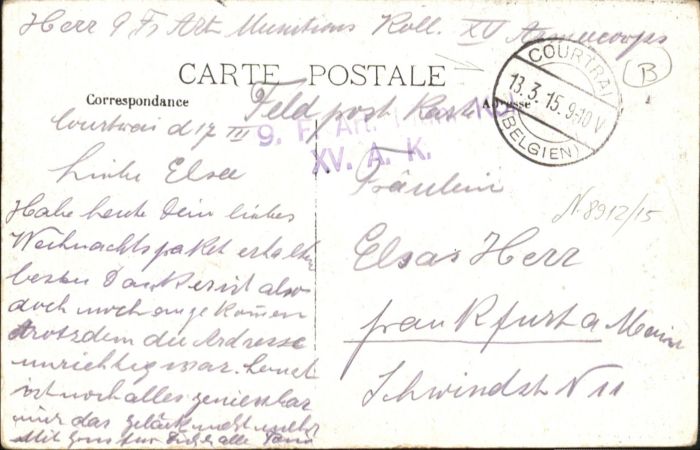 Herr 9 Fs Art Munitions Koll. XV Armeecorps
CARTE POSTALE
Correspondance
Adresse
Feldpost Karte
COURTRAI
13.3.15.9-10V
(BELGIEN)
B
9. F. Art.
XV. A. K.
Courtrai d 17 III
Liebe Elsa
Habe heute Dein liebes
Weihnachtspaket erhalten
besten Dank er ist also
doch noch angekomen
trotzdem die Adresse
unrichtig war. Sonst
ist noch alles geniessbar
nur das nicht mehr
Mit Gruss für Dich alle
Fräulein
N. 8912/15
Elsas Herr
Frankfurt a Main
Schwindst N 11